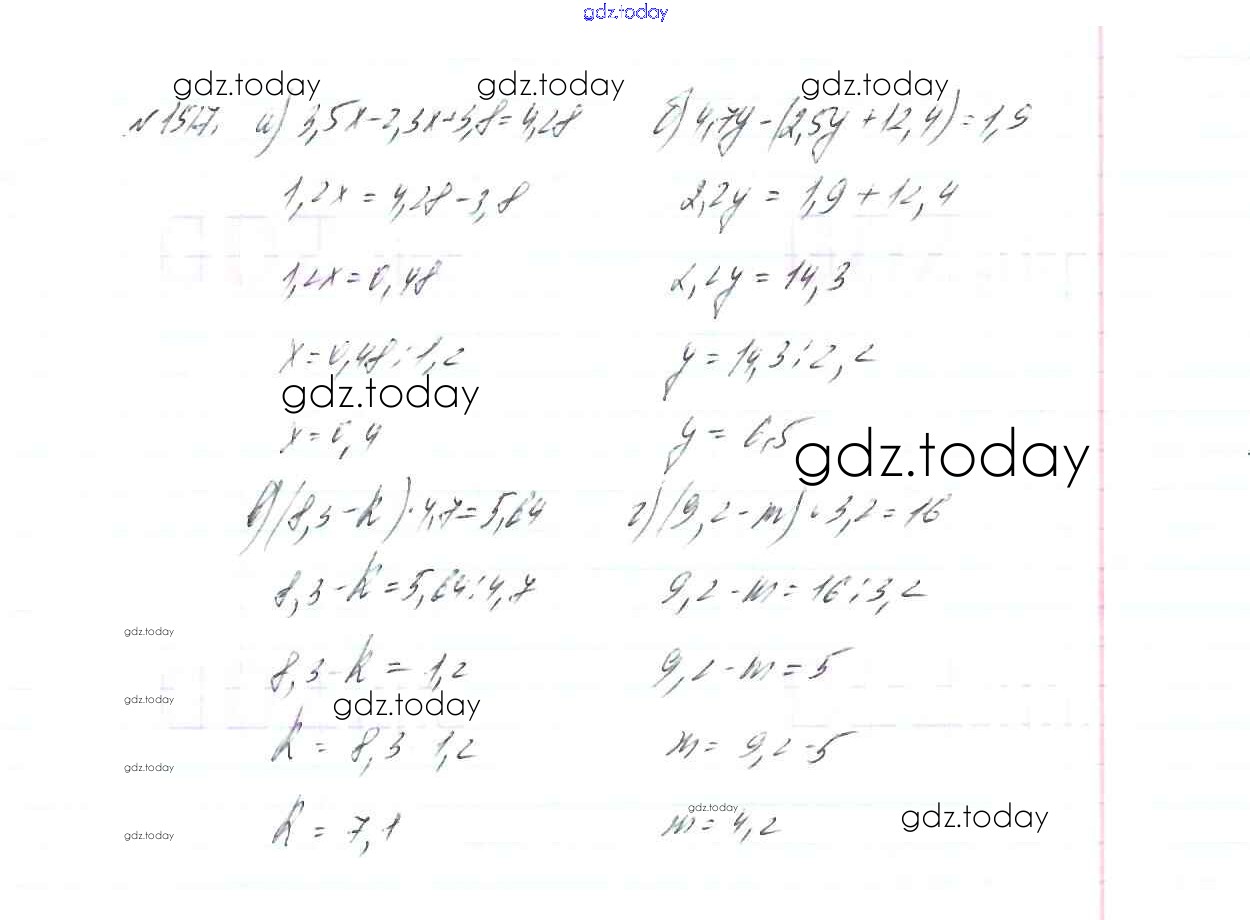 gdz.today
gdz.today gdz.today gdz.today
№1517. а) 3,5x-2,3x+3,8=4,28
1,2x = 4,28-3,8
1,2x=0,48
x=0,48:1,2
gdz.today
x=0,4
б) 4,7y-(2,5y+12,4)=1,9
2,2y = 1,9+12,4
2,2y = 14,3
y = 14,3:2,2
y = 6,5
gdz.today
в) (8,3-k)·4,7=5,64
8,3-k=5,64:4,7
gdz.today
8,3-k = 1,2
gdz.today
gdz.today
k = 8,3 1,2
gdz.today
k = 7,1
gdz.today
г) (9,2-m)·3,2=16
9,2-m=16:3,2
9,2-m=5
m= 9,2-5
gdz.today
m=4,2
gdz.today